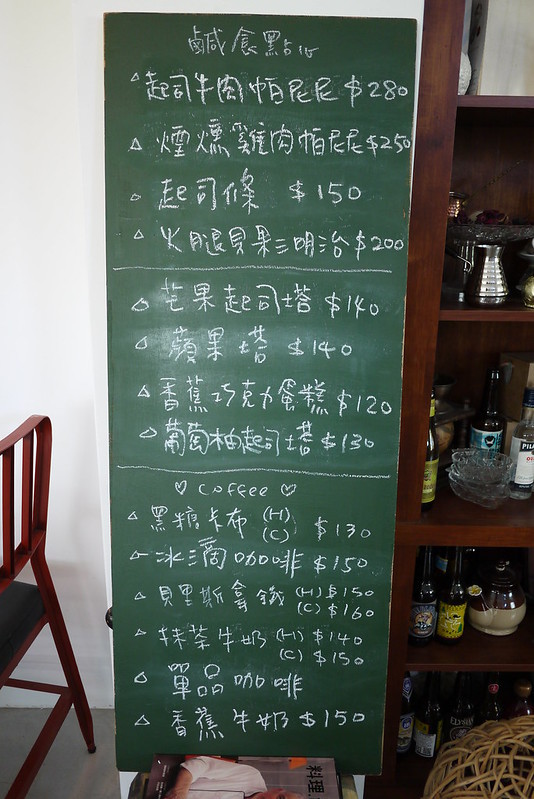 鹹食點心
△ 起司牛肉帕尼尼 $280
△ 煙燻雞肉帕尼尼 $250
△ 起司條 $150
△ 火腿貝果三明治 $200
△ 芒果起司塔 $140
△ 蘋果塔 $140
△ 香蕉巧克力蛋糕 $120
△ 葡萄柚起司塔 $130
♡ coffee ♡
△ 黑糖卡布 (H) (C) $130
△ 冰滴咖啡 $150
△ 貝里斯拿鐵 (H) $150
(C) $160
△ 抹茶牛奶 (H) $140
(C) $150
△ 單品咖啡
△ 香蕉牛奶 $150
料理